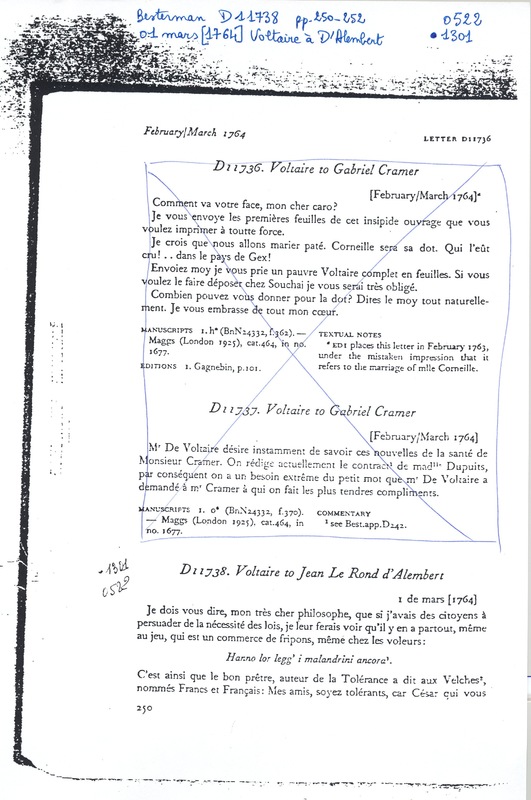 Besterman D11738 pp. 250-252 0522
01 mars [1764] Voltaire à D'Alembert • 1301
February/March 1764
LETTER D11736
D11736. Voltaire to Gabriel Cramer
[February/March 1764]*
Comment va votre face, mon cher caro?
Je vous envoye les premières feuilles de cet insipide ouvrage que vous
voulez imprimer à toutte force.
Je crois que nous allons marier paté. Corneille sera sa dot. Qui l'eût
cru! . . dans le pays de Gex!
Envoiez moy je vous prie un pauvre Voltaire complet en feuilles. Si vous
voulez le faire déposer chez Souchai je vous serai très obligé.
Combien pouvez vous donner pour la dot? Dites le moy tout naturelle-
ment. Je vous embrasse de tout mon cœur.
MANUSCRIPTS 1. h* (BnN24332, f.362). —
Maggs (London 1925), cat.464, in no.
1677.
EDITIONS 1. Gagnebin, p.101.
TEXTUAL NOTES
* ED1 places this letter in February 1763,
under the mistaken impression that it
refers to the marriage of mlle Corneille.
D11737. Voltaire to Gabriel Cramer
[February/March 1764]
Mr De Voltaire désire instamment de savoir ces nouvelles de la santé de
Monsieur Cramer. On rédige actuellement le contract de madlle Dupuits,
par conséquent on a un besoin extrême du petit mot que mr De Voltaire a
demandé à mr Cramer à qui on fait les plus tendres compliments.
MANUSCRIPTS 1. o* (BnN24332, f.370).
— Maggs (London 1925). cat.464, in
no. 1677.
COMMENTARY
1 see Best.app.D242.
D11738. Voltaire to Jean Le Rond d'Alembert
• 1301
0522
1 de mars [1764]
Je dois vous dire, mon très cher philosophe, que si j'avais des citoyens à
persuader de la nécessité des lois, je leur ferais voir qu'il y en a partout, même
au jeu, qui est un commerce de fripons, même chez les voleurs:
Hanno lor legg' i malandrini ancora1.
C'est ainsi que le bon prêtre, auteur de la Tolérance a dit aux Velches2,
nommés Francs et Français: Mes amis, soyez tolérants, car César qui vous
250